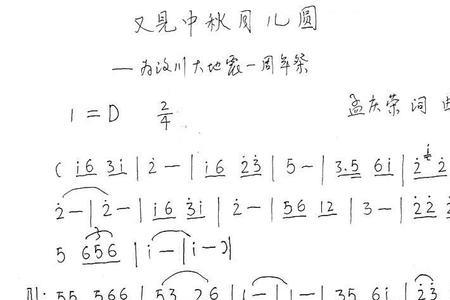 又见中秋月儿圆
——为汶川大地震一周年祭
1=D 2/4
孟庆荣 词 曲
( i̇6 3i̇ | 2̇ - | i̇6 2̇3̇ | 5 - | 3.5 6i̇ | 2̇ 2̇
2̇ - | 2̇ - | i̇6 3̇i̇ | 2̇ - | 56 12 | 3 - | 2̇2̇ 2̇
5 656 | i̇ - | i̇ - )|
‖: 55 566 | 53 26 | ( - | 1 - | 35 6i̇ | 2̇3̇